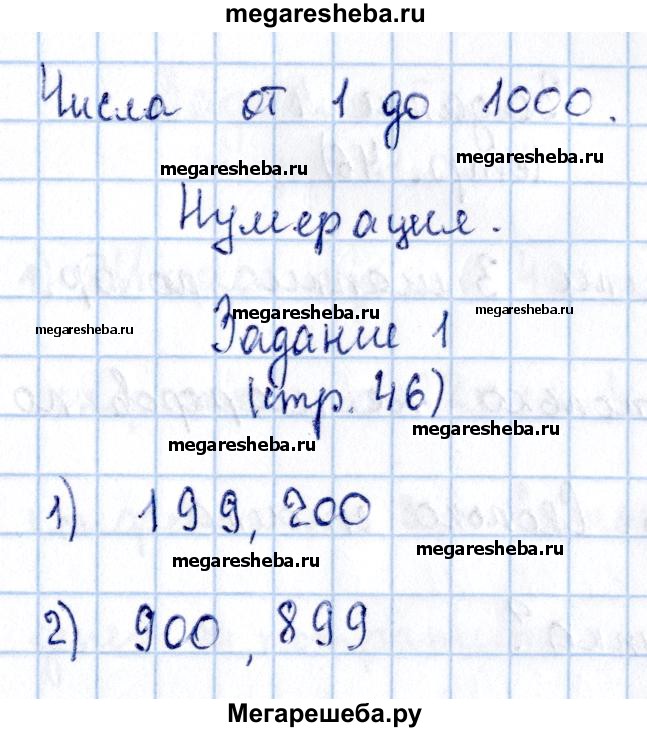 megaresheba.ru
Числа от 1 до 1000.
megaresheba.ru megaresheba.ru
Нумерация.
megaresheba.ru megaresheba.ru megaresheba.ru
Задание 1
(стр. 46)
megaresheba.ru megaresheba.ru
1) 199, 200
megaresheba.ru megaresheba.ru
2) 900, 899
Мегарешеба.ру